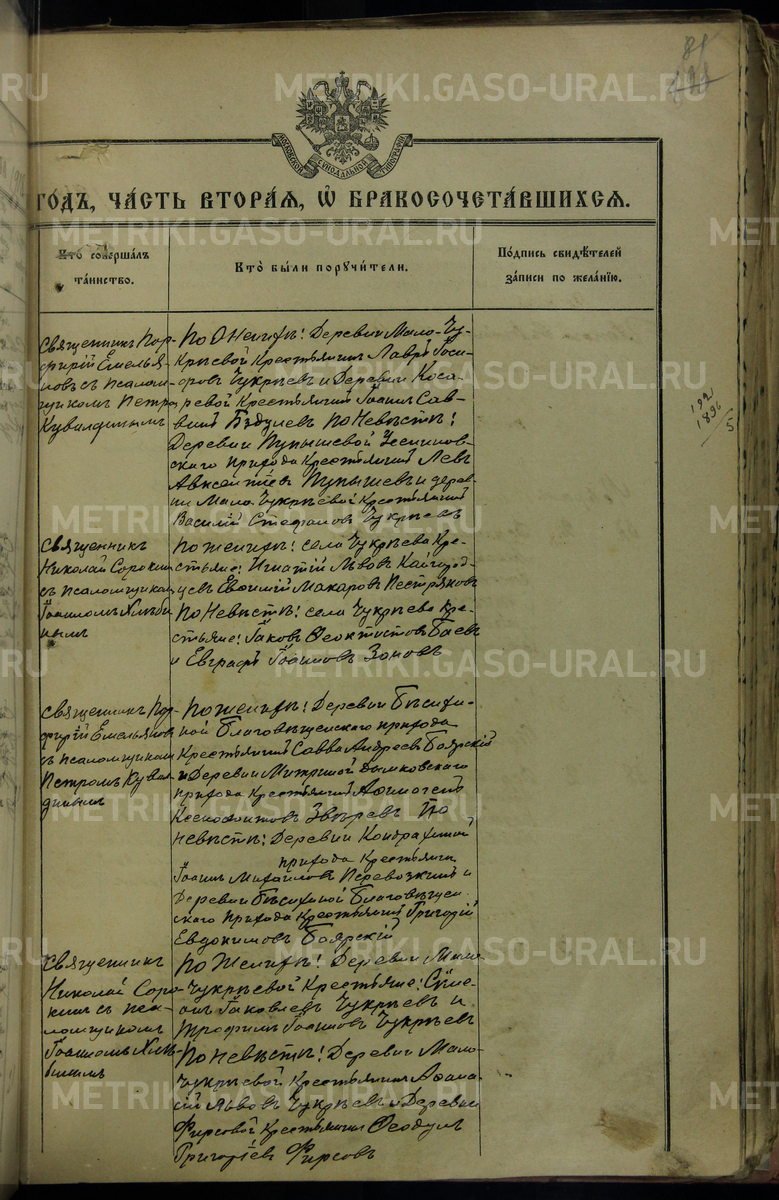 81
МОСКОВСКОЙ СѴНОДАЛЬНОЙ ТИПОГРАФІИ
ГОДЪ, ЧАСТЬ ВТОРАЯ, Ѡ БРАКОСОЧЕТАВШИХСЯ.
Кто совершалъ
таинство.
Кто были поручители.
Подпись свидѣтелей
записи по желанію.
Священникъ Пор-
фирій Емелья-
новъ съ псалом-
щикомъ Петро
Кувалдинымъ
По Женихѣ: Деревни Мало-Чу-
крѣевой Крестьянинъ Лавръ
Чукрѣевъ и Деревни Коса-
ревой Крестьянинъ Іоаннъ Сав-
винъ По Невѣстѣ:
Деревни Пупышевой
скаго прихода Крестьянинъ Левъ
Авксентіевъ Пупышевъ и дерев-
ни Мало Чукрѣевой Крестьянинъ
Василій Стефановъ Чукрѣевъ
Священникъ
Николай Сорокин
съ псаломщиком
Іоанномъ Хлѣби
нымъ
По женихѣ: села Чукрѣева Кре-
стьяне: Игнатій Львовъ Кайгород-
цевъ Евѳимій Макаровъ Пестряковъ
По Невѣстѣ: села Чукрѣева Кре-
стьяне: Іаковъ Ѳеоктистовъ Баевъ
и Евграфъ Іоанновъ Зоновъ
1921
1896
5
Священникъ Пор-
фирій Емельяновъ
съ псаломщикомъ
Петромъ Кувал-
динымъ
По женихѣ: Деревни Бѣсихи-
ной Благовѣщенскаго прихода
Крестьянинъ Савва Андреевъ Боярскій
и Деревни Митриной Дымковскаго
прихода Крестьянинъ Аѳиногенъ
Звѣревъ По
Невѣстѣ: Деревни Кондрахиной
прихода Крестьянин
Іоаннъ Михайловъ Перевозкинъ и
Деревни Бѣсихиной Благовѣщен-
скаго прихода Крестьянинъ Григорій
Евдокимовъ Боярскій
Священникъ
Николай Соро-
кинъ съ пса-
ломщикомъ
Іоанномъ Хлѣ-
бинымъ
По Женихѣ: Деревни Мало
Чукрѣевой Крестьяне: Сѵме-
онъ Іаковлевъ Чукрѣевъ и
Трофимъ Іоанновъ Чукрѣевъ
По Невѣстѣ: Деревни Мало-
Чукрѣевой Крестьянинъ Аѳана-
сій Львовъ Чукрѣевъ и Деревни
Фирсовой Крестьянинъ Ѳеодулъ
Григоріевъ Фирсовъ
METRIKI.GASO-URAL.RU